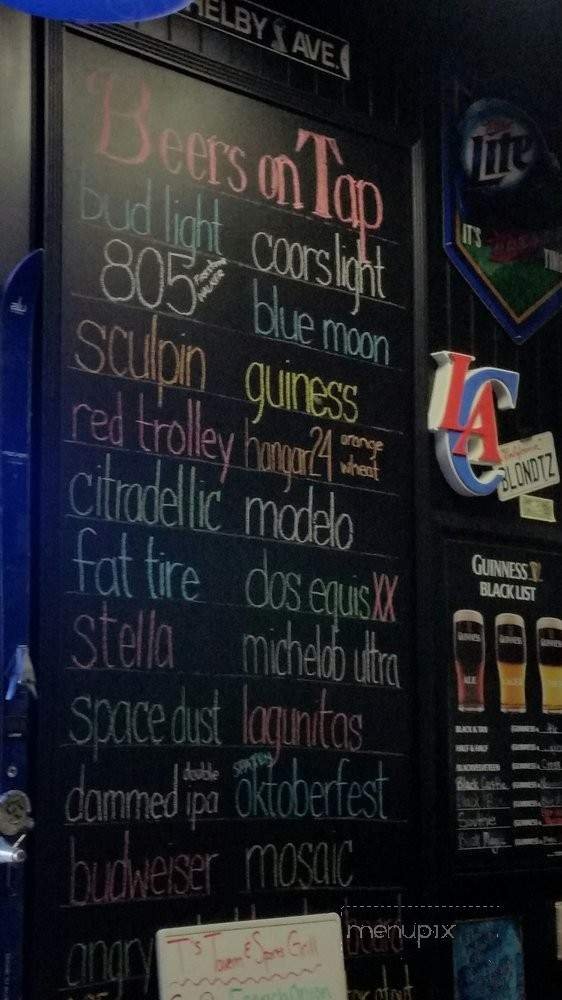 SHELBY AVE.
Beers on Tap
bud light
805 Firestone Walker
sculpin
red trolley
citradellic
fat tire
stella
space dust
dammed double ipa
budweiser
angry
coors light
blue moon
guiness
hangar 24 orange wheat
modelo
dos equis XX
michelob ultra
lagunitas
spaten oktoberfest
mosaic
T's Tavern & Sports Grill
French Onion
Lite
IT'S
LAC
BLONDTZ
GUINNESS
BLACK LIST
BLACK & TAN
HALF & HALF
menupix